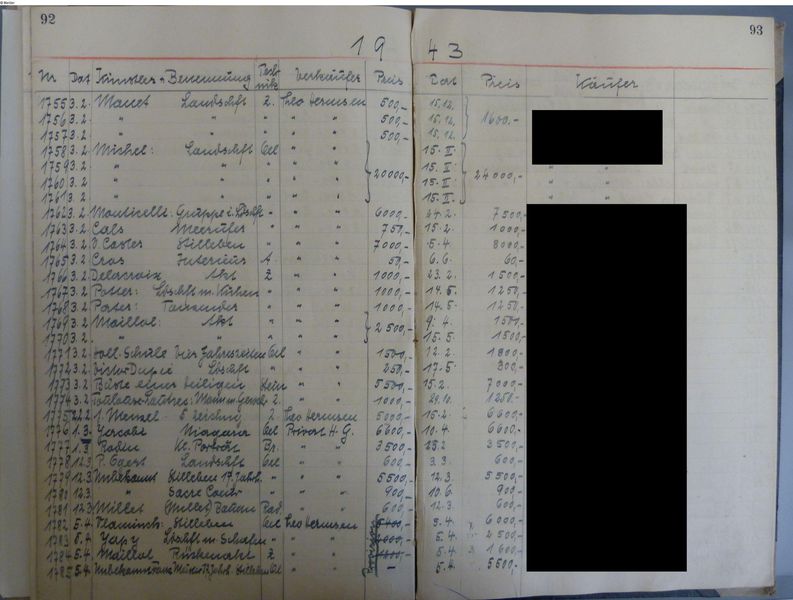 92
93
19 43
Nr. Dat Künstler u. Benennung Technik Verkäufer Preis Dat Preis Käufer
1755 3.2. Manet Landschft Z. Theo Hermsen 500,- 15.12. 1600,-
1756 3.2. " " " " " 500,- 15.12.
1757 3.2. " " " " " 500,- 15.12.
1758 3.2. Michel: Landschft Oel " " 20000,- 15.II. 24000,-
1759 3.2. " " " " 15.II. " "
1760 3.2. " " " " 15.II. " "
1761 3.2. " " " " 15.II. " "
1762 3.2. Monticelli Gruppe i. Ldschft " " " 6000,- 24.2. 7500,-
1763 3.2. Cals Meerufer " " " 750,- 15.2. 1000,-
1764 3.2. Stilleben " " " 7000,- 5.4. 8000,-
1765 3.2. Cros Interieur A. " " 50,- 6.6. 60,-
1766 3.2. Delacroix Akt Z " " 1000,- 23.2. 1500,-
1767 3.2. Potter: Ldschft m. Kühen " " " 1000,- 14.5. 1250,-
1768 3.2. " " " 1000,- 14.5. 1250,-
1769 3.2. Maillol: Akt " " " 2500,- 9.4. 1500,-
1770 3.2. " " " " " 15.5. 1500,-
1771 3.2. Holl. Schule Vier Jahreszeiten Oel " " 1500,- 12.2. 1800,-
1772 3.2. Victor Dupré Ldschft " " " 250,- 17.5. 300,-
1773 3.2. Büste einer Heiligen Stein " " 5500,- 15.2. 7000,-
1774 3.2. Toulouse-Lautrec: Mann m. Z. " " 1000,- 29.10. 1250,-
1775 22.2. Menzel Zeichng Z Theo Hermsen 5000,- 15.2. 6600,-
1776 1.3. Niagara Oel Privat H.G. 6600,- 10.4. 6600,-
1777 1.3. Rodin Kl. Porträt Br. " " 3500,- 23.2 3500,-
1778 12.3 Landschft Oel " " 600,- 3.3. 600,-
1779 12.3 Unbekannt Stilleben 17. Jahrh. " " " 5500,- 12.3. 5500,-
1780 12.3 " Sacre Coeur " " " 900,- 10.6. 900,-
1781 12.3 Millet (Millet) Rad. " " 600,- 12.3. 600,-
1782 5.4. Vlaminck: Stilleben Oel Theo Hermsen 5400,- 5.4. 6000,-
1783 5.4. Yapy Ldschft m. Schafen " " " 2000,- 5.4. 2500,-
1784 5.4. Maillol Rückenakt Z " " 5.4. 1600,-
1785 5.4. Unbekannt Meister 17. Jahrh. Stilleben Oel - 5.4. 5500,-
Provision